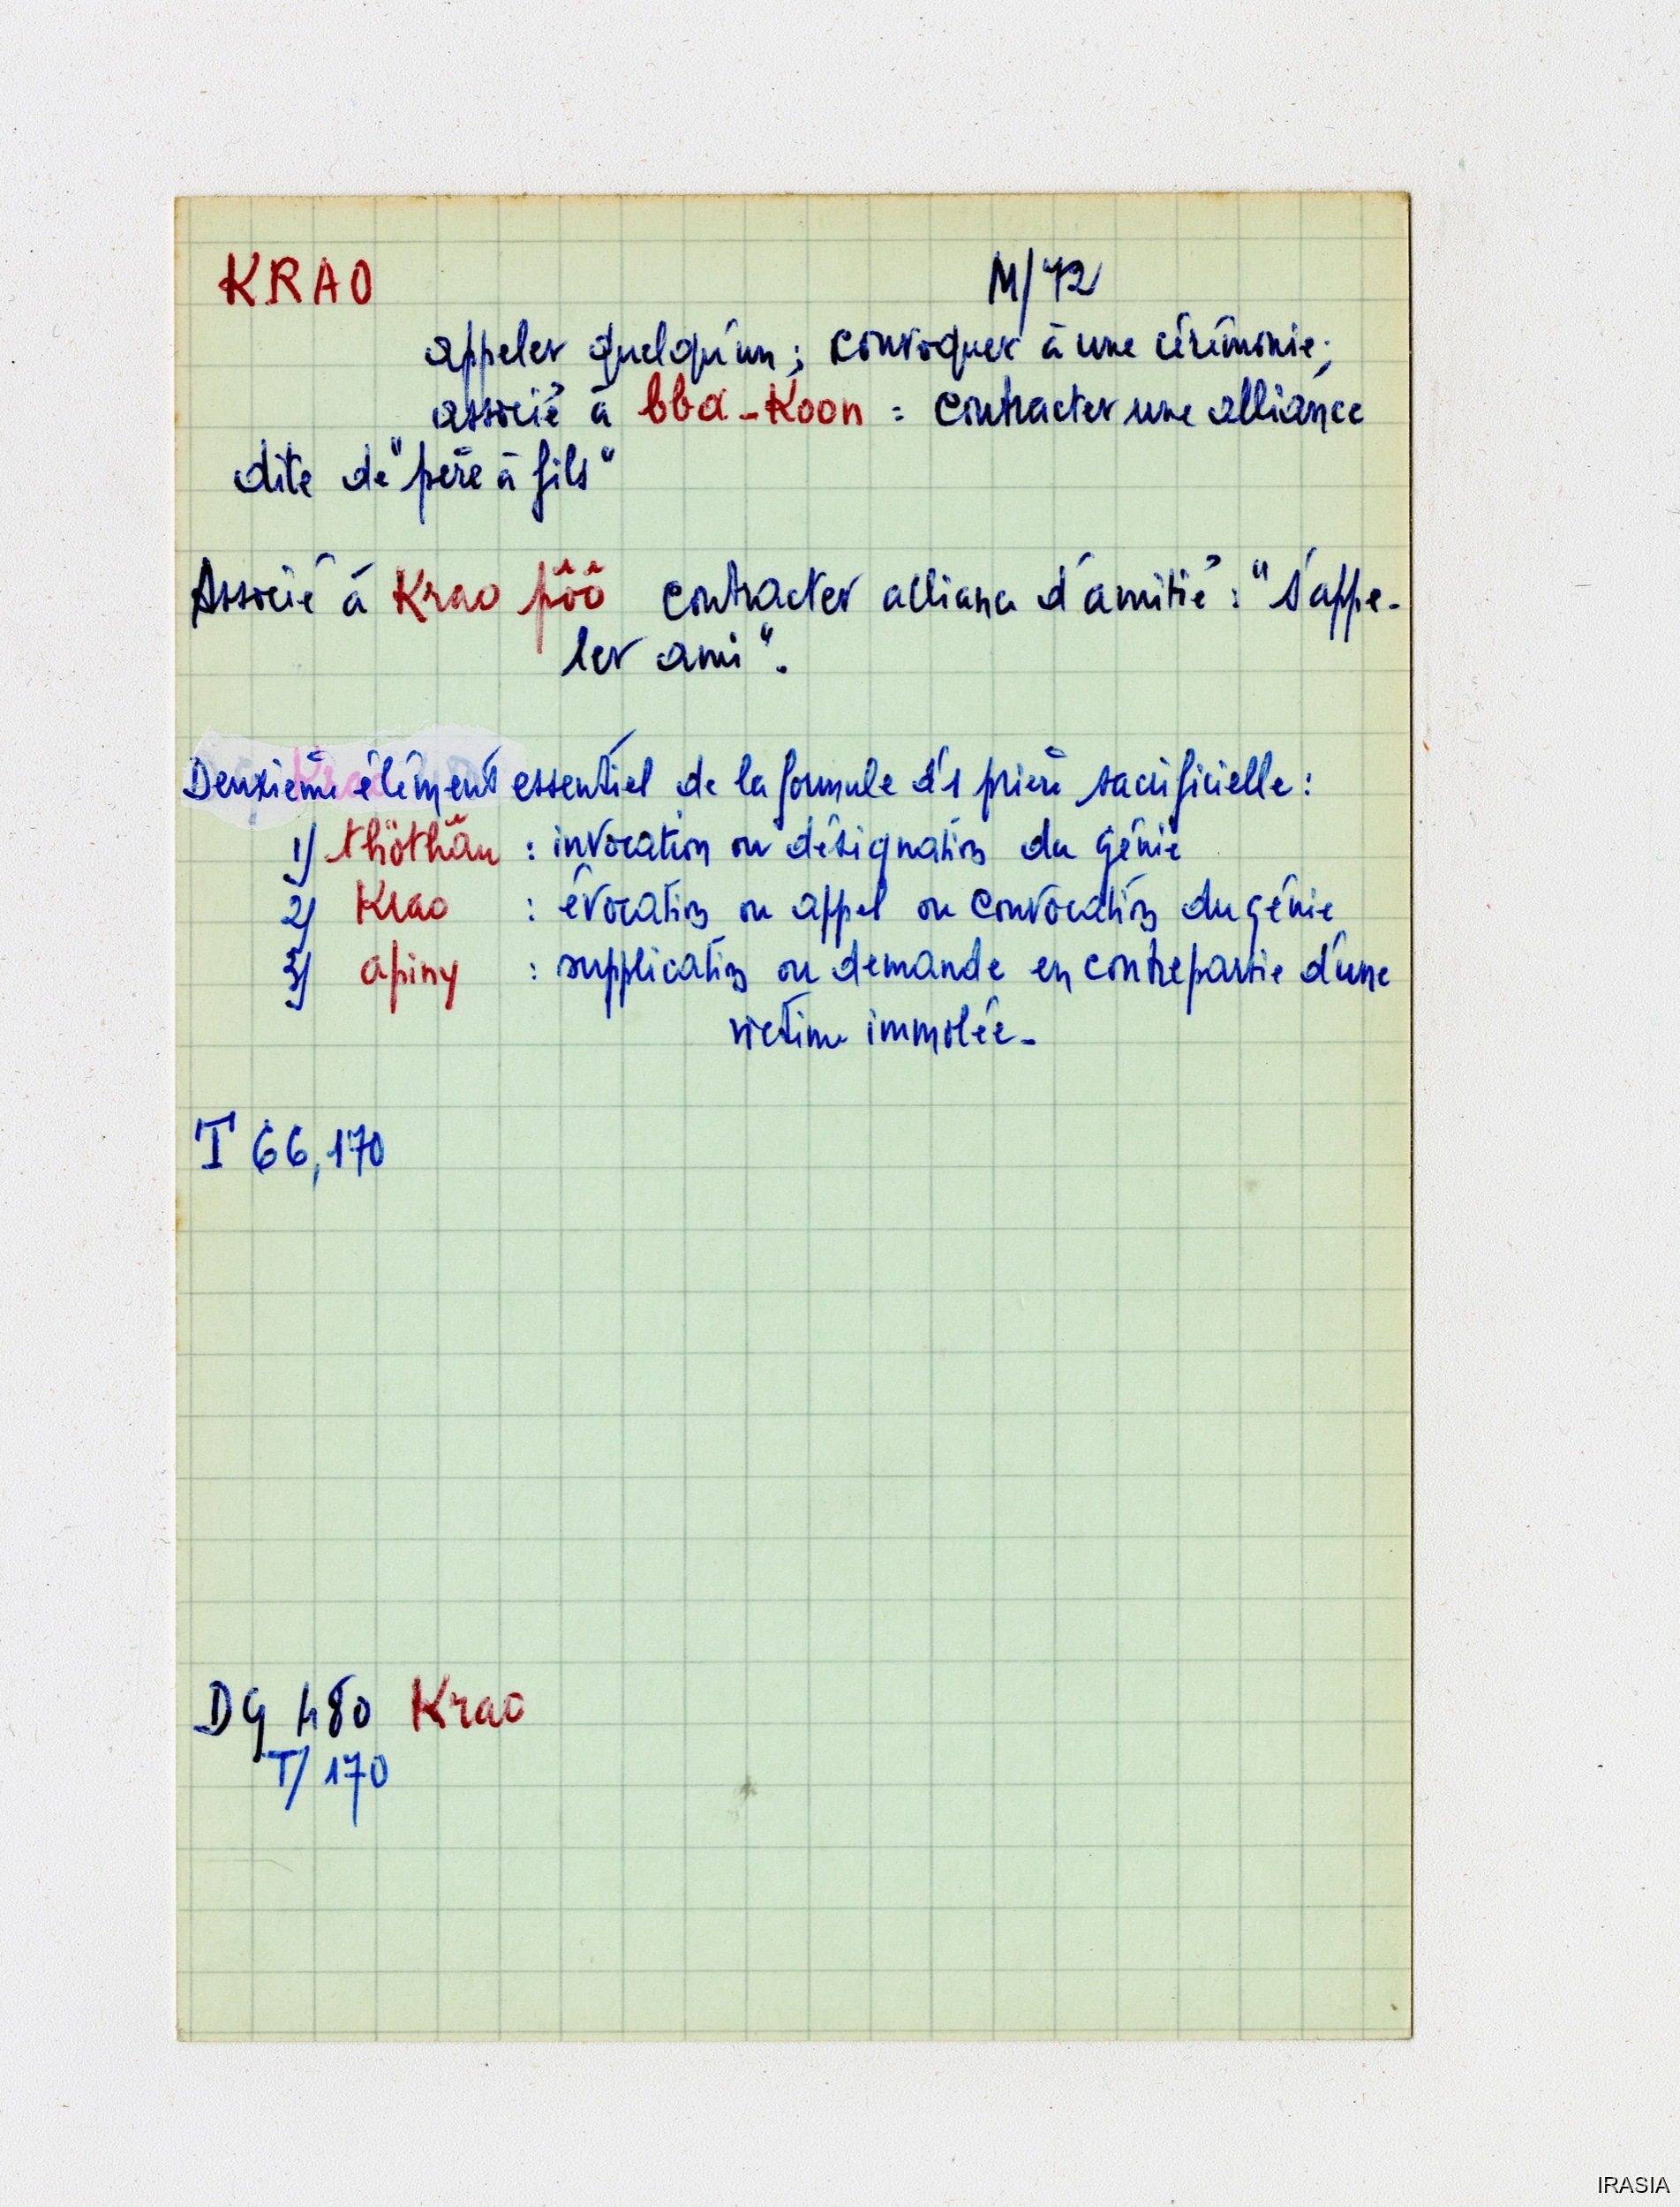 KRAO M/72
appeler quelqu'un ; convoquer à une cérémonie ;
associé à bba-Koon : contracter une alliance
dite de "père à fils"
Associé à Krao pôô contracter alliance d'amitié : "s'appe-
ler ami".
Deuxième élément essentiel de la formule ds prière sacrificielle :
1) thöthân : invocation ou désignation du génie
2) Krao : évocation ou appel ou convocation du génie
3) apiny : supplication ou demande en contrepartie d'une
victime immolée -
T 66, 170
DG 480 Krao
T/ 170
IRASIA